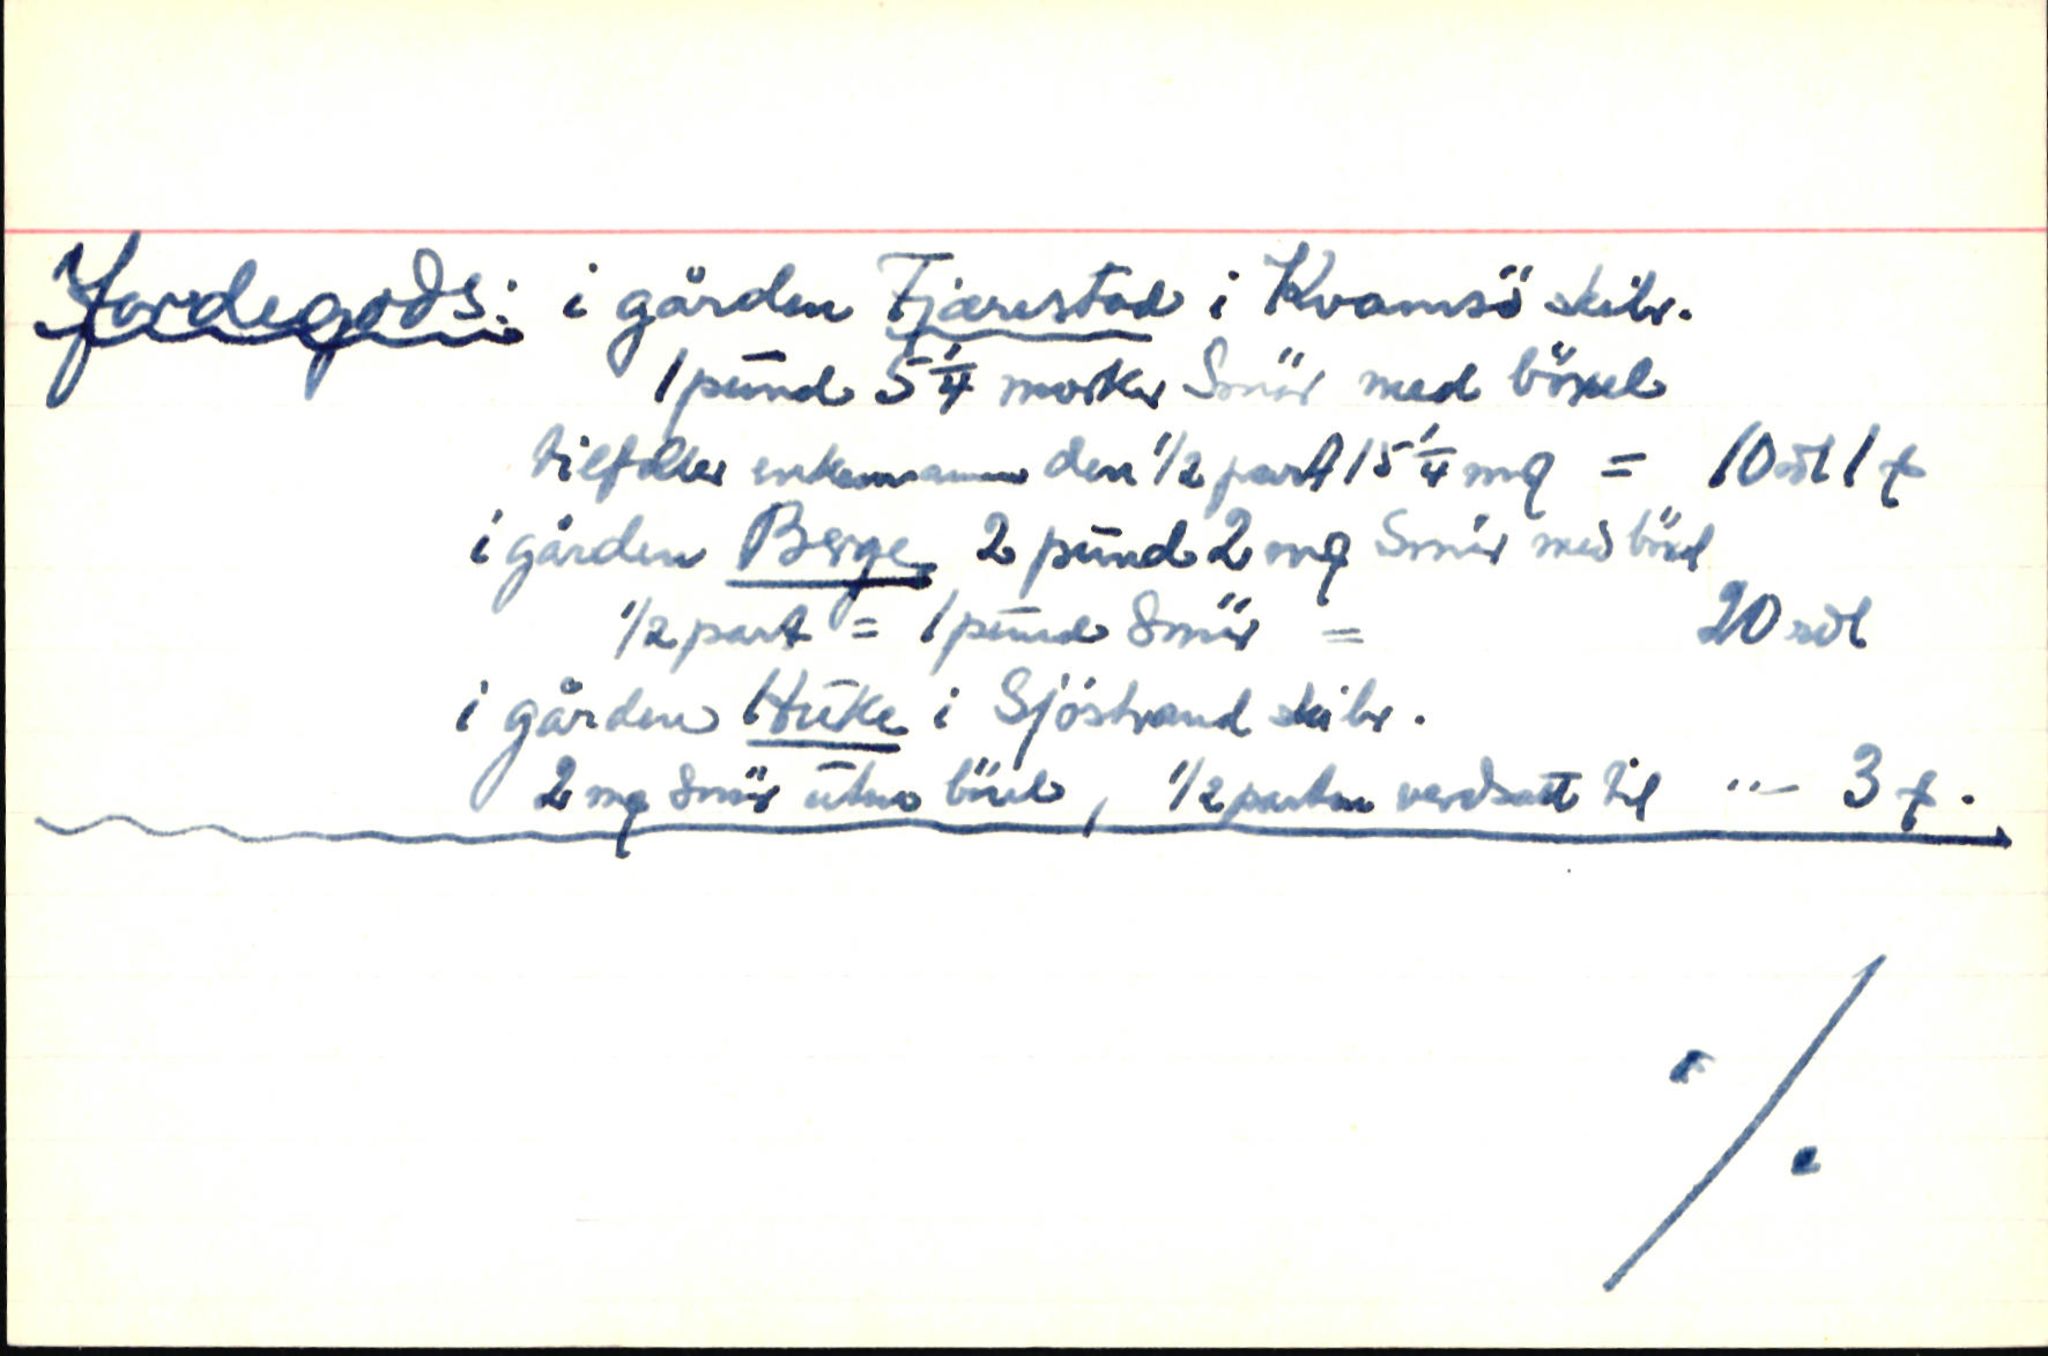 Jordegods: i gården Fjærestad i Kvamsö skibr.
1 pund 5 1/4 marker Smör med böxel
tilfaller enkemannen den 1/2 part 15 1/4 mq = 10 rdl 1 ƒ
i gården Berge 2 pund 2 mq Smör med böxel
1/2 part = 1 pund Smör = 20 rdl
i gården Huke i Sjöstrand skibr.
2 mq Smör uten böxel, 1/2 parten verdsatt til "— 3 ƒ.
./.